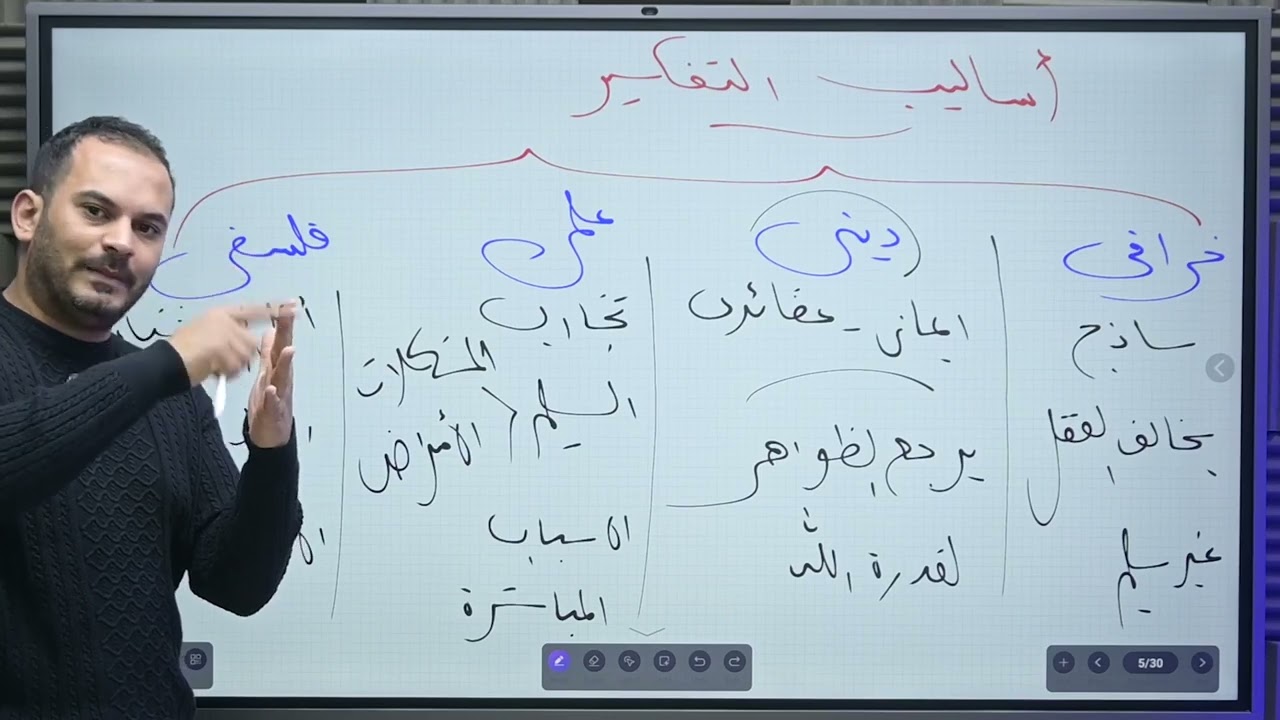 أساليب التفكير
خرافى
ساذج
يخالف العقل
غير سليم
دينى
ايمانى - عقائدى
يرجع الظواهر
لقدرة الله
علمى
تجارب
السليم
المشكلات
الأمراض
الاسباب
المباشرة
فلسفى
5/30